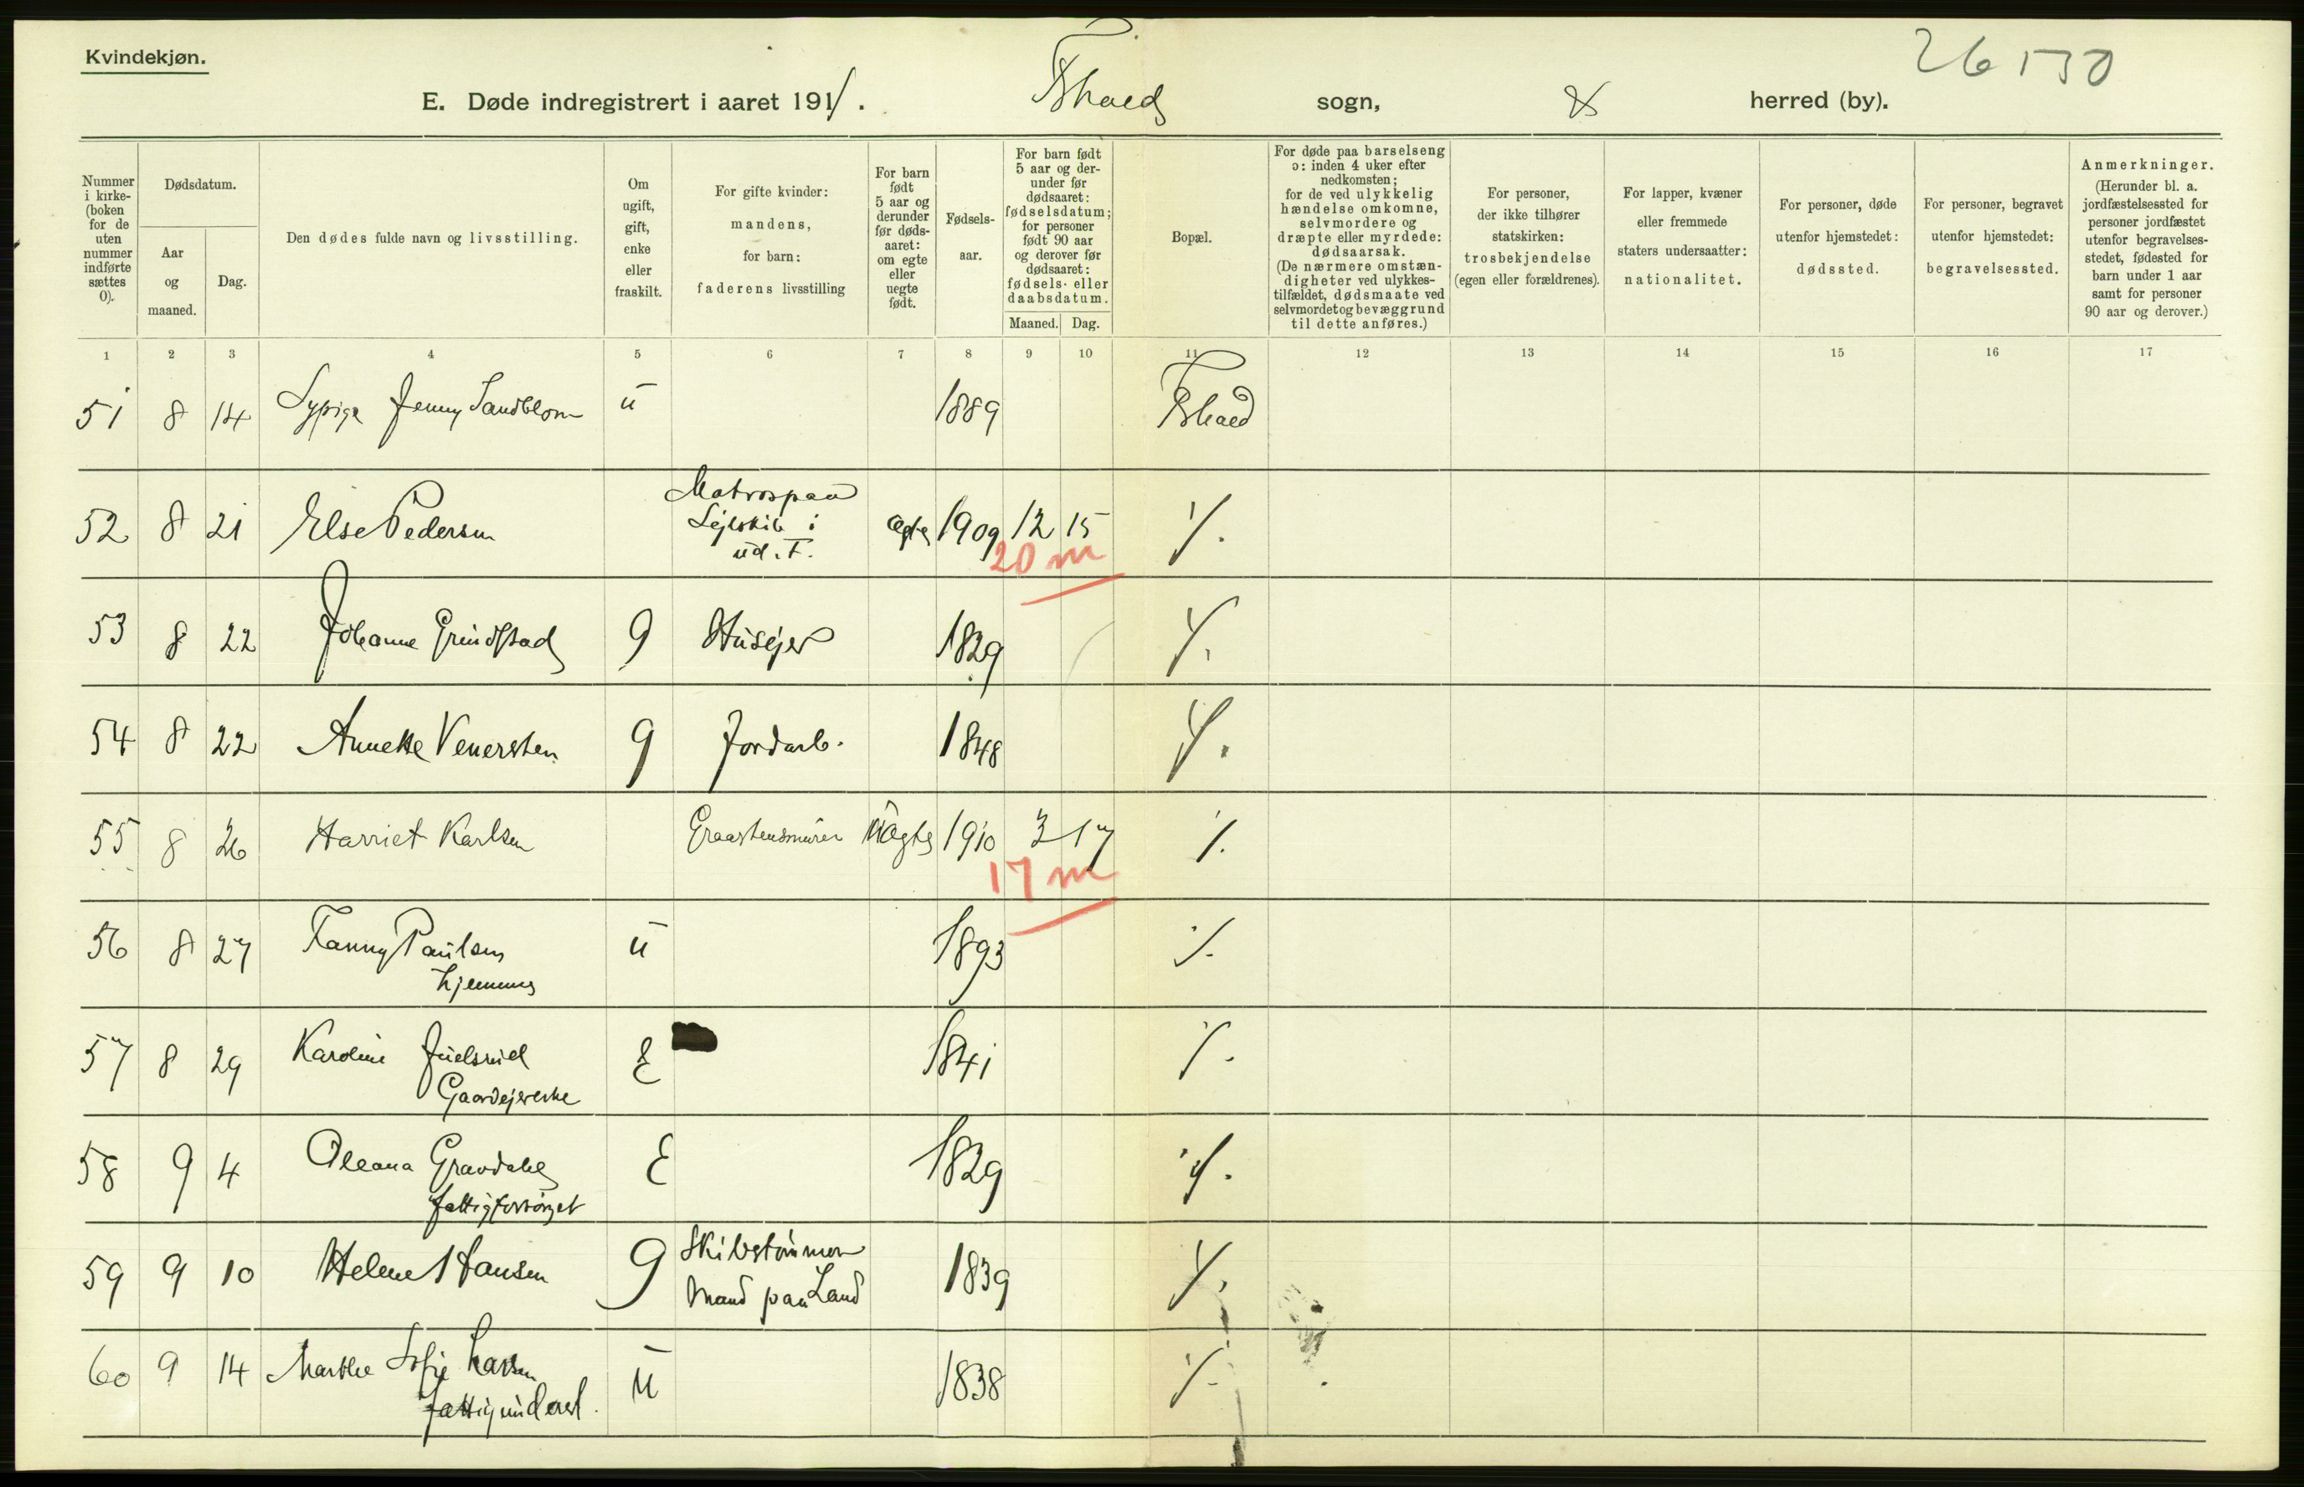 Kvindekjøn.
26 530
E. Døde indregistrert i aaret 1911. Fshald sogn, herred (by).
Nummer i kirke-(boken for de uten nummer indførte sættes 0).
Dødsdatum.
Aar og maaned.
Dag.
Den dødes fulde navn og livsstilling.
Om ugift, gift, enke eller fraskilt.
For gifte kvinder: mandens, for barn: faderens livsstilling
For barn født 5 aar og derunder før døds-aaret: om egte eller uegte født.
Fødsels-aar.
For barn født 5 aar og der-under før dødsaaret: fødselsdatum; for personer født 90 aar og derover før dødsaaret: fødsels- eller daabsdatum.
Maaned. Dag.
Bopæl.
For døde paa barselseng ɔ: inden 4 uker efter nedkomsten; for de ved ulykkelig hændelse omkomne, selvmordere og dræpte eller myrdede: dødsaarsak. (De nærmere omstæn-digheter ved ulykkes-tilfældet, dødsmaate ved selvmordet og bevæggrund til dette anføres.)
For personer, der ikke tilhører statskirken: trosbekjendelse (egen eller forældrenes).
For lapper, kvæner eller fremmede staters undersaatter: nationalitet.
For personer, døde utenfor hjemstedet: dødssted.
For personer, begravet utenfor hjemstedet: begravelsessted.
Anmerkninger. (Herunder bl. a. jordfæstelsessted for personer jordfæstet utenfor begravelses-stedet, fødested for barn under 1 aar samt for personer 90 aar og derover.)
1 2 3 4 5 6 7 8 9 10 11 12 13 14 15 16 17
51 8 14 Sypige Jenny Sandblom u 1889 Fshald
52 8 21 Else Pedersen Matros paa Sejlskib i ud. F. egte 1909 12 15 ⁒
20 m
53 8 22 Johanne Grindstad g Husejer 1829 ⁒
54 8 22 Annette Venersten g Jordarb. 1848 ⁒
55 8 26 Harriet Karlsen Graastensmurer Uægte 1910 3 17 ⁒
17 m
56 8 27 Fanny Paulsen u 1893 ⁒
hjemme
57 8 29 Karoline Juelsrud E 1841 ⁒
Gaardejerenke
58 9 4 Oleana Gravdahl E 1829 ⁒
fattigforsørget
59 9 10 Helene Hansen g Skibstømmermand paa Land 1839 ⁒
60 9 14 Marthe Sofie Larsen u 1838 ⁒
fattigunderst.